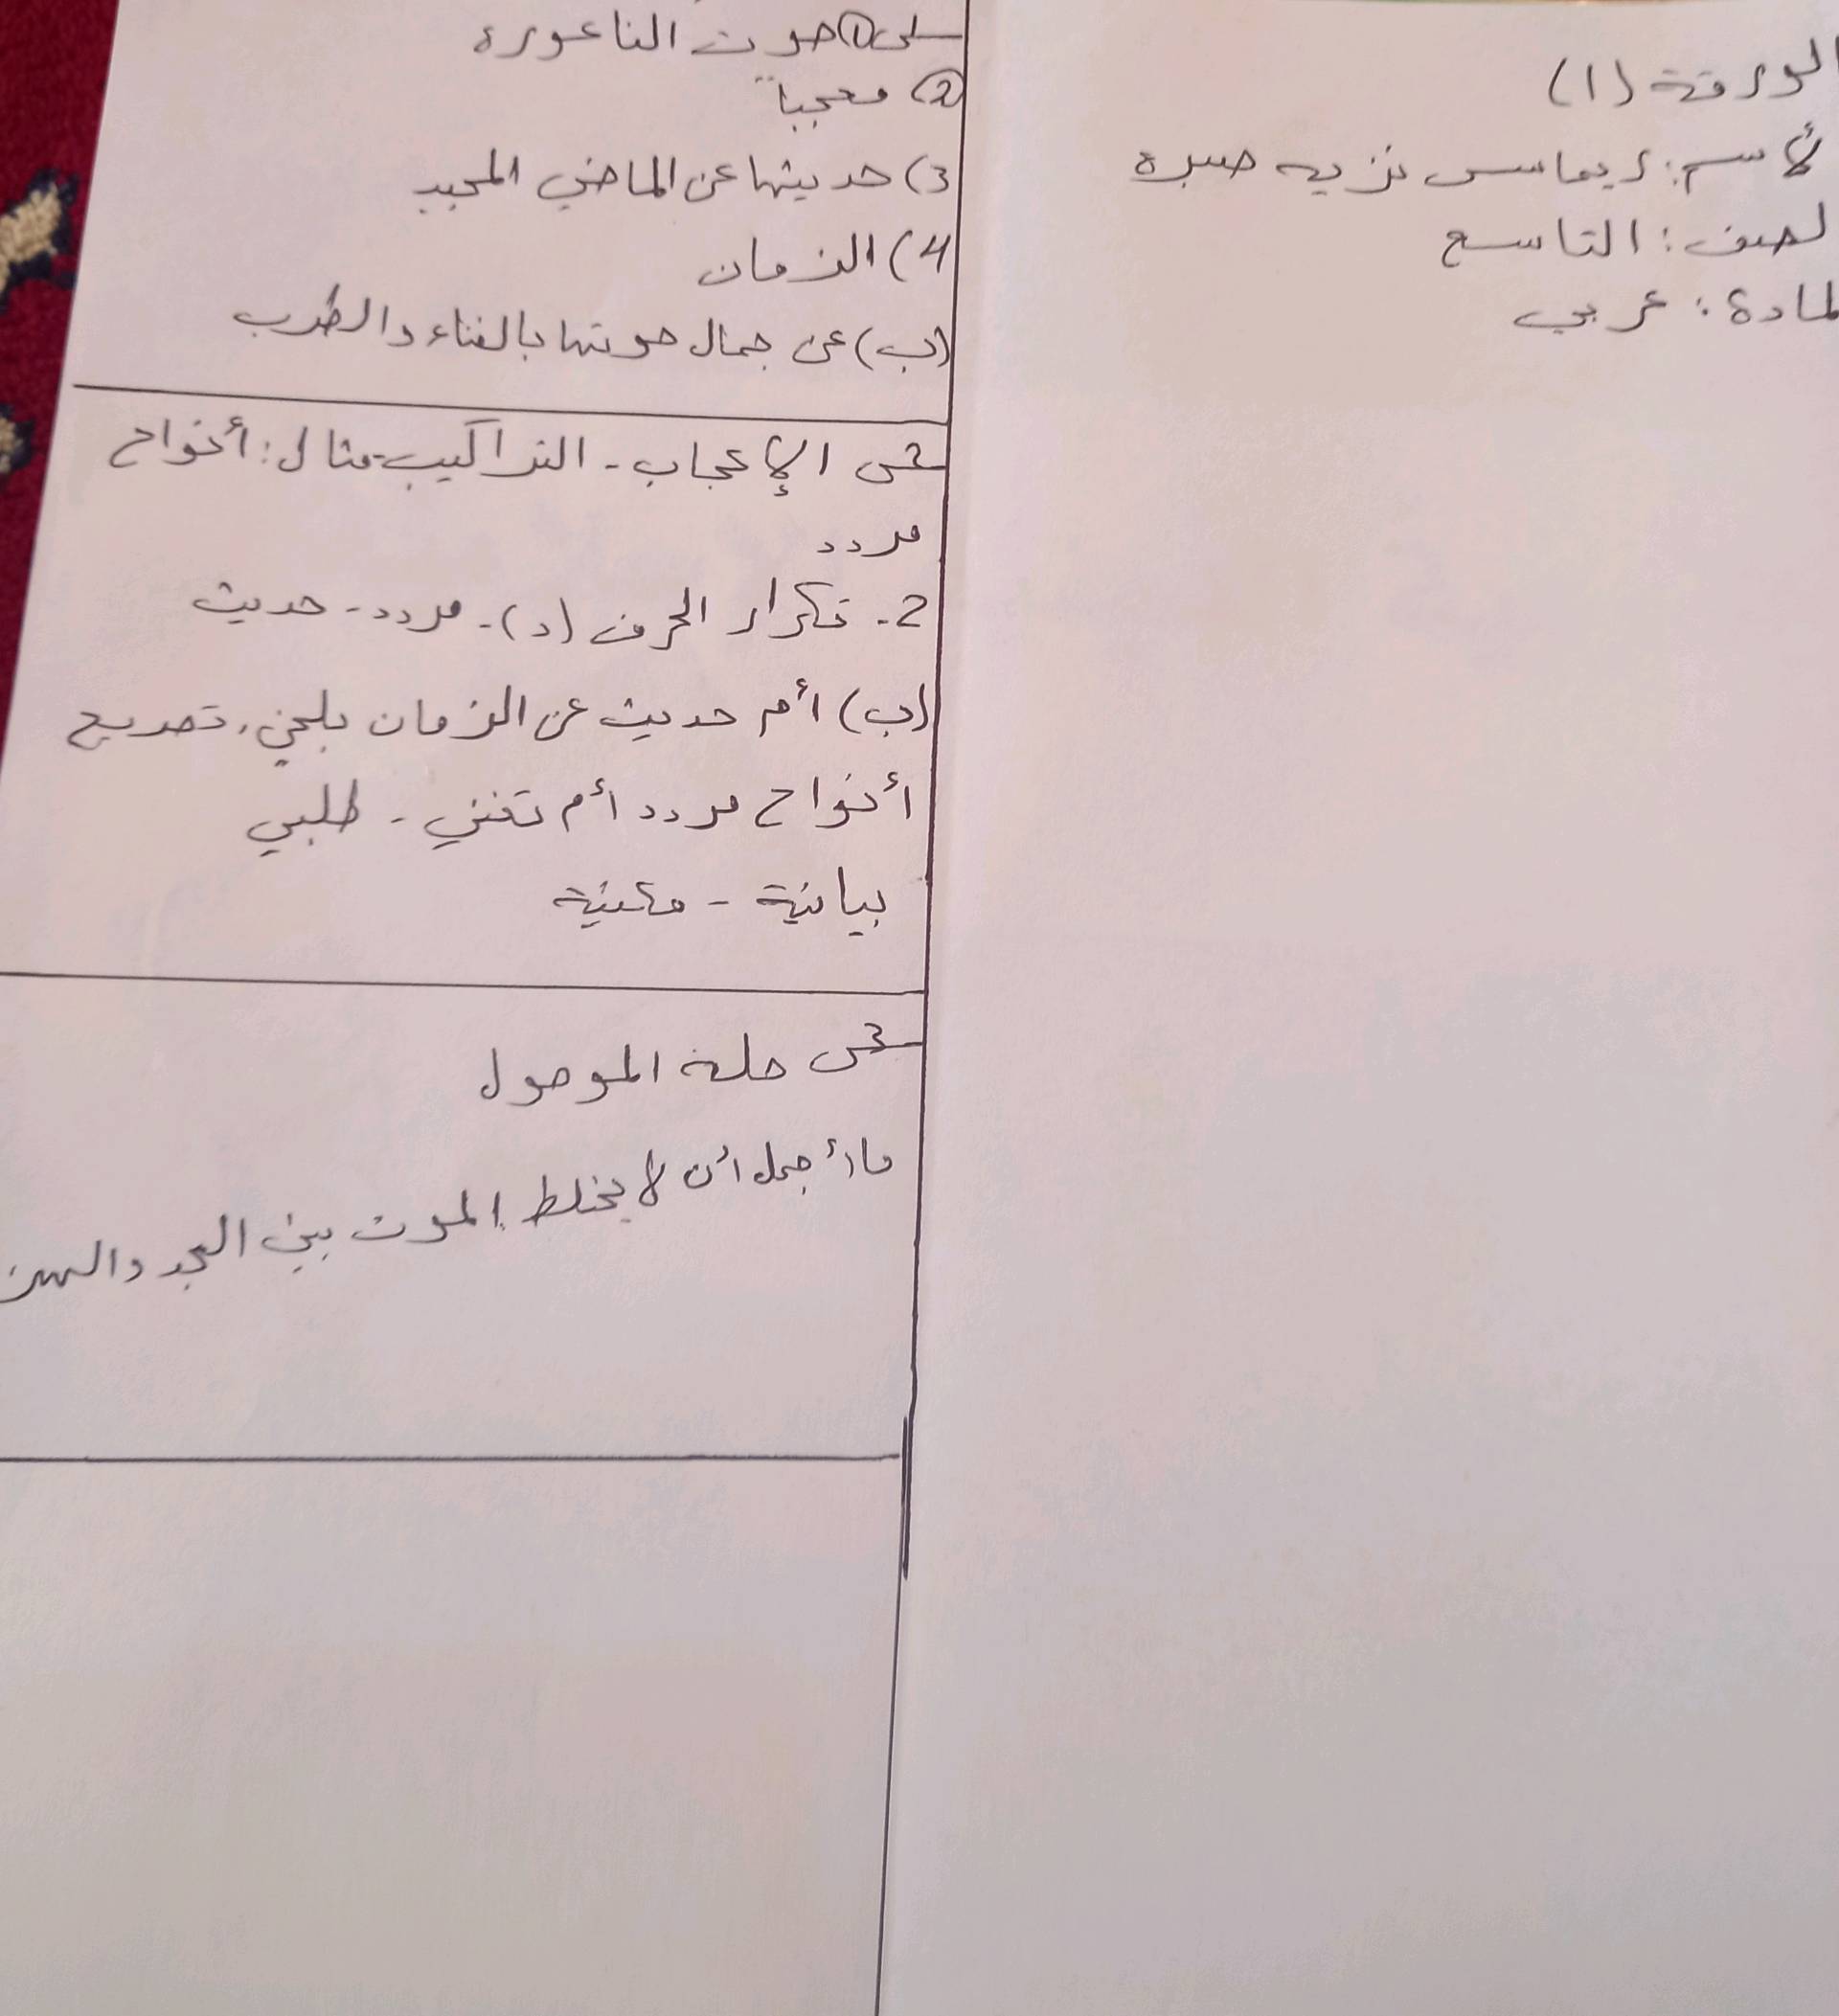 الورقة (١)
الأسم: ريماس نزيه صبرة
لصف: التاسع
لمادة: عربي
س١ ① صوت الناعورة
② معجباً
3) حديثها عن الماضي المجيد
4) الزمان
(ب) عن جمال صوتها بالغناء والطرب
س2 الإعجاب - التراكيب - مثال: أنواح
مردد
2 - تكرار الحرف (د) - مردد - حديث
(ب) أم حديث عن الزمان بلحن، تصريع
أنواح مردد أم تغني - طلبي
بيانية - مكنية
س3 صلة الموصول
ما أجمل أن لا يخلط الموت بين الجد والهز